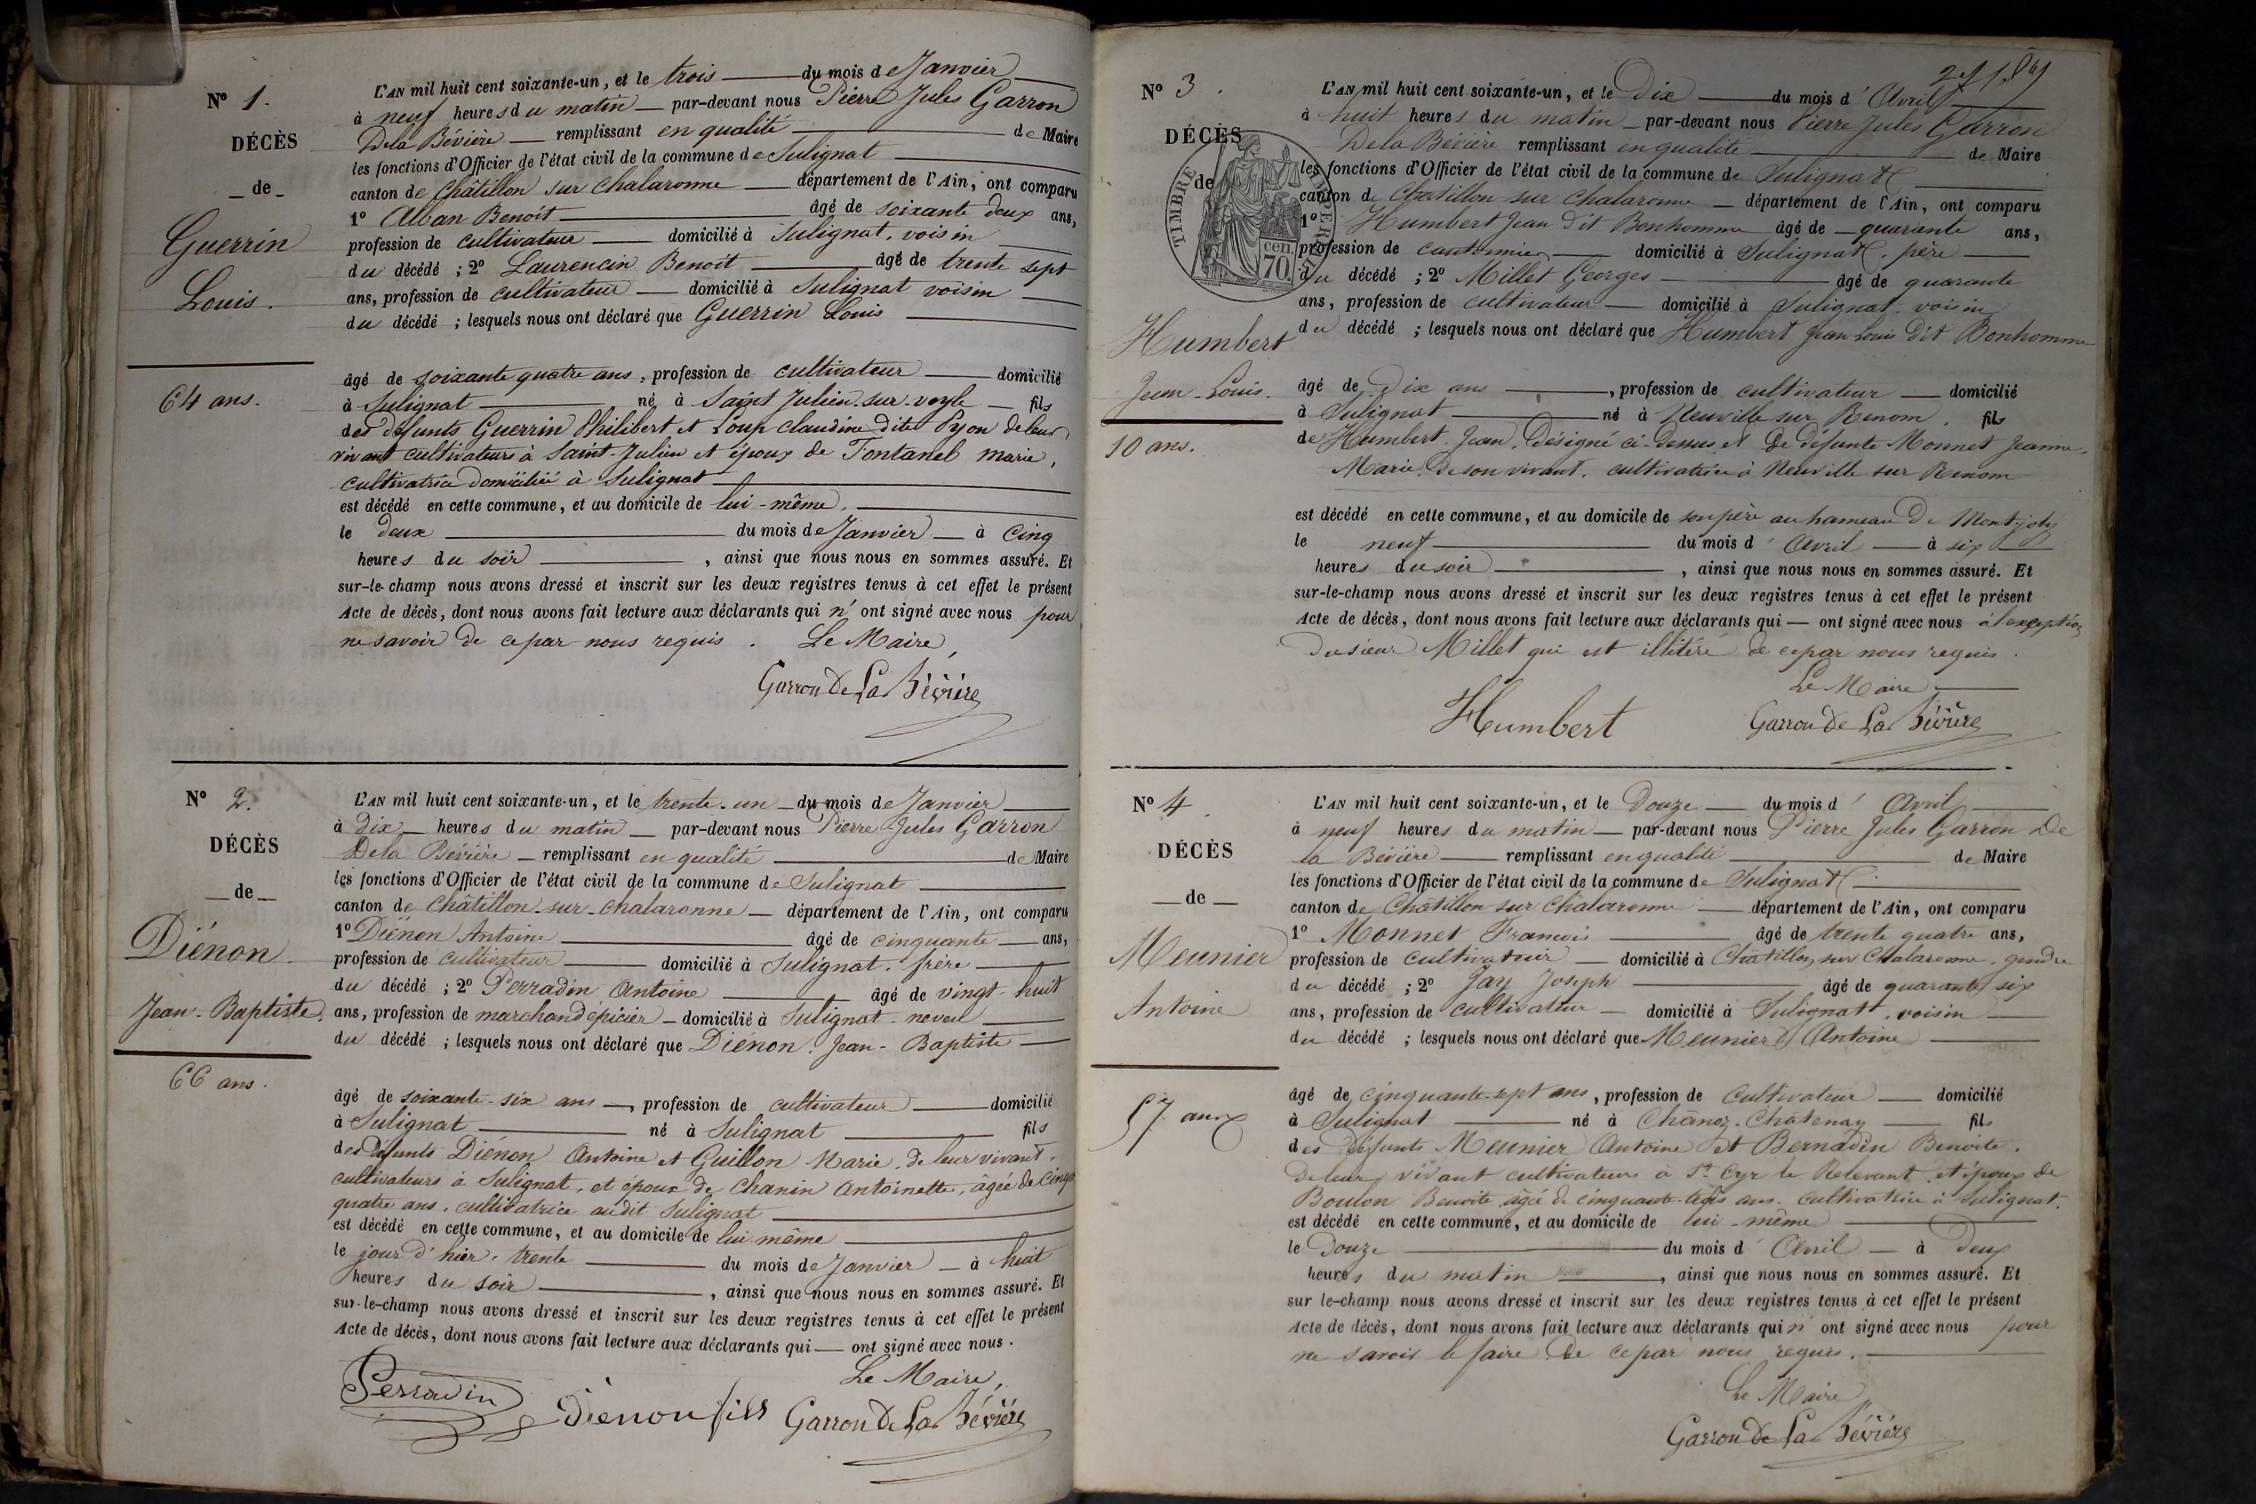 N° 1.
DÉCÈS
de
Guerrin
Louis.
64 ans.
L'AN mil huit cent soixante-un, et le trois du mois de Janvier
à neuf heures du matin par-devant nous Pierre Jules Garron
De la Bévière remplissant en qualité de Maire
les fonctions d'Officier de l'état civil de la commune de Sulignat
canton de Châtillon sur Chalaronne département de l'Ain, ont comparu
1° Alban Benoît âgé de soixante deux ans,
profession de cultivateur domicilié à Sulignat, voisin
du décédé ; 2° Laurencin Benoît âgé de trente sept
ans, profession de cultivateur domicilié à Sulignat voisin
du décédé ; lesquels nous ont déclaré que Guerrin Louis
âgé de soixante quatre ans, profession de cultivateur domicilié
à Sulignat né à Saint Julien-sur-veyle fils
des défunts Guerrin Philibert et Loup Claudine dite Pyon de leur
vivant cultivateurs à Saint-Julien et époux de Fontanel marie,
cultivatrice domiciliée à Sulignat
est décédé en cette commune, et au domicile de lui-même.
le deux du mois de Janvier à cinq
heures du soir, ainsi que nous nous en sommes assuré. Et
sur-le-champ nous avons dressé et inscrit sur les deux registres tenus à cet effet le présent
Acte de décès, dont nous avons fait lecture aux déclarants qui n' ont signé avec nous pour
ne savoir de ce par nous requis. Le Maire,
Garron De La Bévière
N° 2.
DÉCÈS
de
Diénon
Jean-Baptiste.
66 ans.
L'AN mil huit cent soixante-un, et le trente-un du mois de Janvier
à dix heures du matin par-devant nous Pierre Jules Garron
De la Bévière remplissant en qualité de Maire
les fonctions d'Officier de l'état civil de la commune de Sulignat
canton de Châtillon-sur-chalaronne département de l'Ain, ont comparu
1° Diénon Antoine âgé de cinquante ans,
profession de cultivateur domicilié à Sulignat. frère
du décédé ; 2° Perradin Antoine âgé de vingt-huit
ans, profession de marchand épicier domicilié à Sulignat neveu
du décédé ; lesquels nous ont déclaré que Diénon Jean-Baptiste
âgé de soixante-six ans, profession de cultivateur domicilié
à Sulignat né à Sulignat fils
des défunts Diénon Antoine et Guillon Marie, de leur vivant
cultivateurs à Sulignat, et époux de Chanin Antoinette, âgée de cinq
quatre ans, cultivatrice audit Sulignat
est décédé en cette commune, et au domicile de lui-même
le jour d'hier, trente du mois de Janvier à huit
heures du soir, ainsi que nous nous en sommes assuré. Et
sur-le-champ nous avons dressé et inscrit sur les deux registres tenus à cet effet le présent
Acte de décès, dont nous avons fait lecture aux déclarants qui ont signé avec nous.
Le Maire,
Perradin Diénon fils Garron De La Bévière
N° 3.
DÉCÈS
de
TIMBRE IMPERIAL
70 cen.
Humbert
Jean-Louis.
10 ans.
L'AN mil huit cent soixante-un, et le Dix du mois d'Avril
à huit heures du matin par-devant nous Pierre Jules Garron
De la Bévière remplissant en qualité de Maire
les fonctions d'Officier de l'état civil de la commune de Sulignat
canton de Chatillon sur Chalaronne département de l'Ain, ont comparu
1° Humbert Jean dit Bonhomme âgé de quarante ans,
profession de cantonnier domicilié à Sulignat, père
du décédé ; 2° Millet Georges âgé de quarante
ans, profession de cultivateur domicilié à Sulignat voisin
du décédé ; lesquels nous ont déclaré que Humbert Jean Louis Dit Bonhomme
âgé de Dix ans, profession de cultivateur domicilié
à Sulignat né à Neuville sur Renom. fils
de Humbert Jean, Désigné ci-Dessus et De défunte Monnet Jeanne
Marie, de son vivant, cultivatrice à Neuville sur Renom
est décédé en cette commune, et au domicile de son père au hameau De Montjoly
le neuf du mois d'Avril à six
heures du soir, ainsi que nous nous en sommes assuré. Et
sur-le-champ nous avons dressé et inscrit sur les deux registres tenus à cet effet le présent
Acte de décès, dont nous avons fait lecture aux déclarants qui ont signé avec nous à l'exception
du sieur Millet qui est illitéré de ce par nous requis.
Le Maire
Humbert Garron De La Bévière
N° 4
DÉCÈS
de
Meunier
Antoine
57 ans
L'AN mil huit cent soixante-un, et le Douze du mois d'Avril
à neuf heures du matin par-devant nous Pierre Jules Garron De
la Bévière remplissant en qualité de Maire
les fonctions d'Officier de l'état civil de la commune de Sulignat
canton de Châtillon sur Chalaronne département de l'Ain, ont comparu
1° Monnet Francois âgé de trente quatre ans,
profession de cultivateur domicilié à Chatillon sur Chalaronne, gendre
du décédé ; 2° Jay Joseph âgé de quarante six
ans, profession de cultivateur domicilié à Sulignat, voisin
du décédé ; lesquels nous ont déclaré que Meunier Antoine
âgé de cinquante-sept ans, profession de cultivateur domicilié
à Sulignat né à Chanoz-Châtenay fils
des défunts Meunier Antoine et Bernadin Benoite.
De leur vivant cultivateurs à St Cyr le Relevant, et époux de
Boulon Benoite âgée de cinquante-trois ans. cultivatrice à Sulignat.
est décédé en cette commune, et au domicile de lui-même
le Douze du mois d'Avril à Deux
heures du matin, ainsi que nous nous en sommes assuré. Et
sur le-champ nous avons dressé et inscrit sur les deux registres tenus à cet effet le présent
Acte de décès, dont nous avons fait lecture aux déclarants qui n' ont signé avec nous pour
ne savoir le faire De ce par nous requis.
Le Maire
Garron De La Bévière